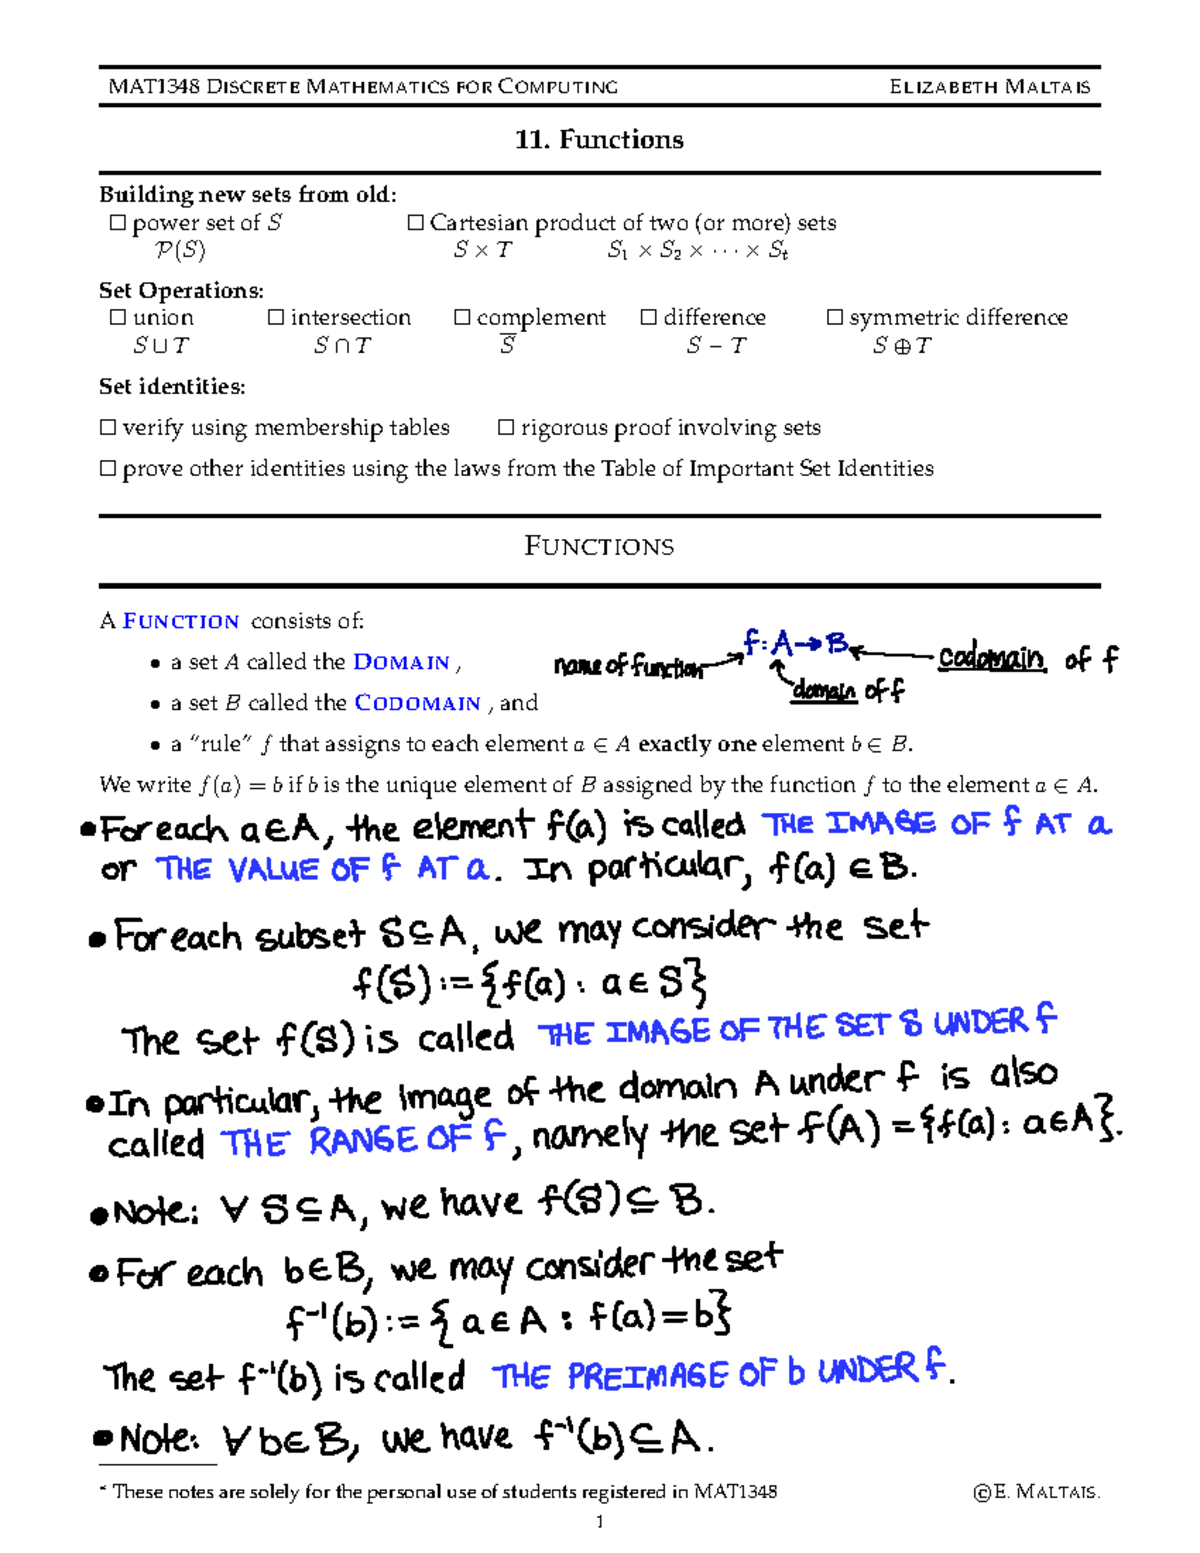 MAT1348 DISCRETE MATHEMATICS FOR COMPUTING ELIZABETH MALTAIS
11. Functions
Building new sets from old:
□ power set of S □ Cartesian product of two (or more) sets
P(S) S × T S₁ × S₂ × ··· × Sₜ
Set Operations:
□ union □ intersection □ complement □ difference □ symmetric difference
S ∪ T S ∩ T S̅ S − T S ⊕ T
Set identities:
□ verify using membership tables □ rigorous proof involving sets
□ prove other identities using the laws from the Table of Important Set Identities
FUNCTIONS
A FUNCTION consists of:
• a set A called the DOMAIN ,
• a set B called the CODOMAIN , and
• a "rule" f that assigns to each element a ∈ A exactly one element b ∈ B.
f: A → B
name of function
codomain of f
domain of f
We write f(a) = b if b is the unique element of B assigned by the function f to the element a ∈ A.
• For each a∈A, the element f(a) is called THE IMAGE OF f AT a
or THE VALUE OF f AT a. In particular, f(a) ∈ B.
• For each subset S⊆A, we may consider the set
f(S) := {f(a) : a ∈ S}
The set f(S) is called THE IMAGE OF THE SET S UNDER f
• In particular, the image of the domain A under f is also
called THE RANGE OF f, namely the set f(A) = {f(a) : a∈A}.
• Note: ∀ S⊆A, we have f(S) ⊆ B.
• For each b∈B, we may consider the set
f⁻¹(b) := { a ∈ A : f(a) = b}
The set f⁻¹(b) is called THE PREIMAGE OF b UNDER f.
• Note: ∀ b∈B, we have f⁻¹(b) ⊆ A.
* These notes are solely for the personal use of students registered in MAT1348 ©E. MALTAIS.
1